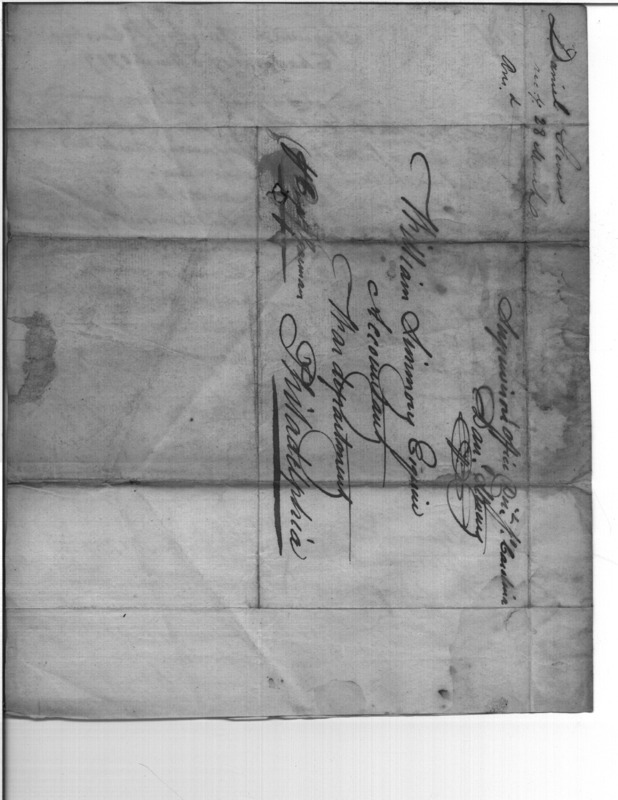 Daniel Stevens
recd. 28 March
Ans.d
Supervisors office Dist. So. Carolina
Dan. Stevens
William Simmons Esquire
Accountant
War department
Philadelphia